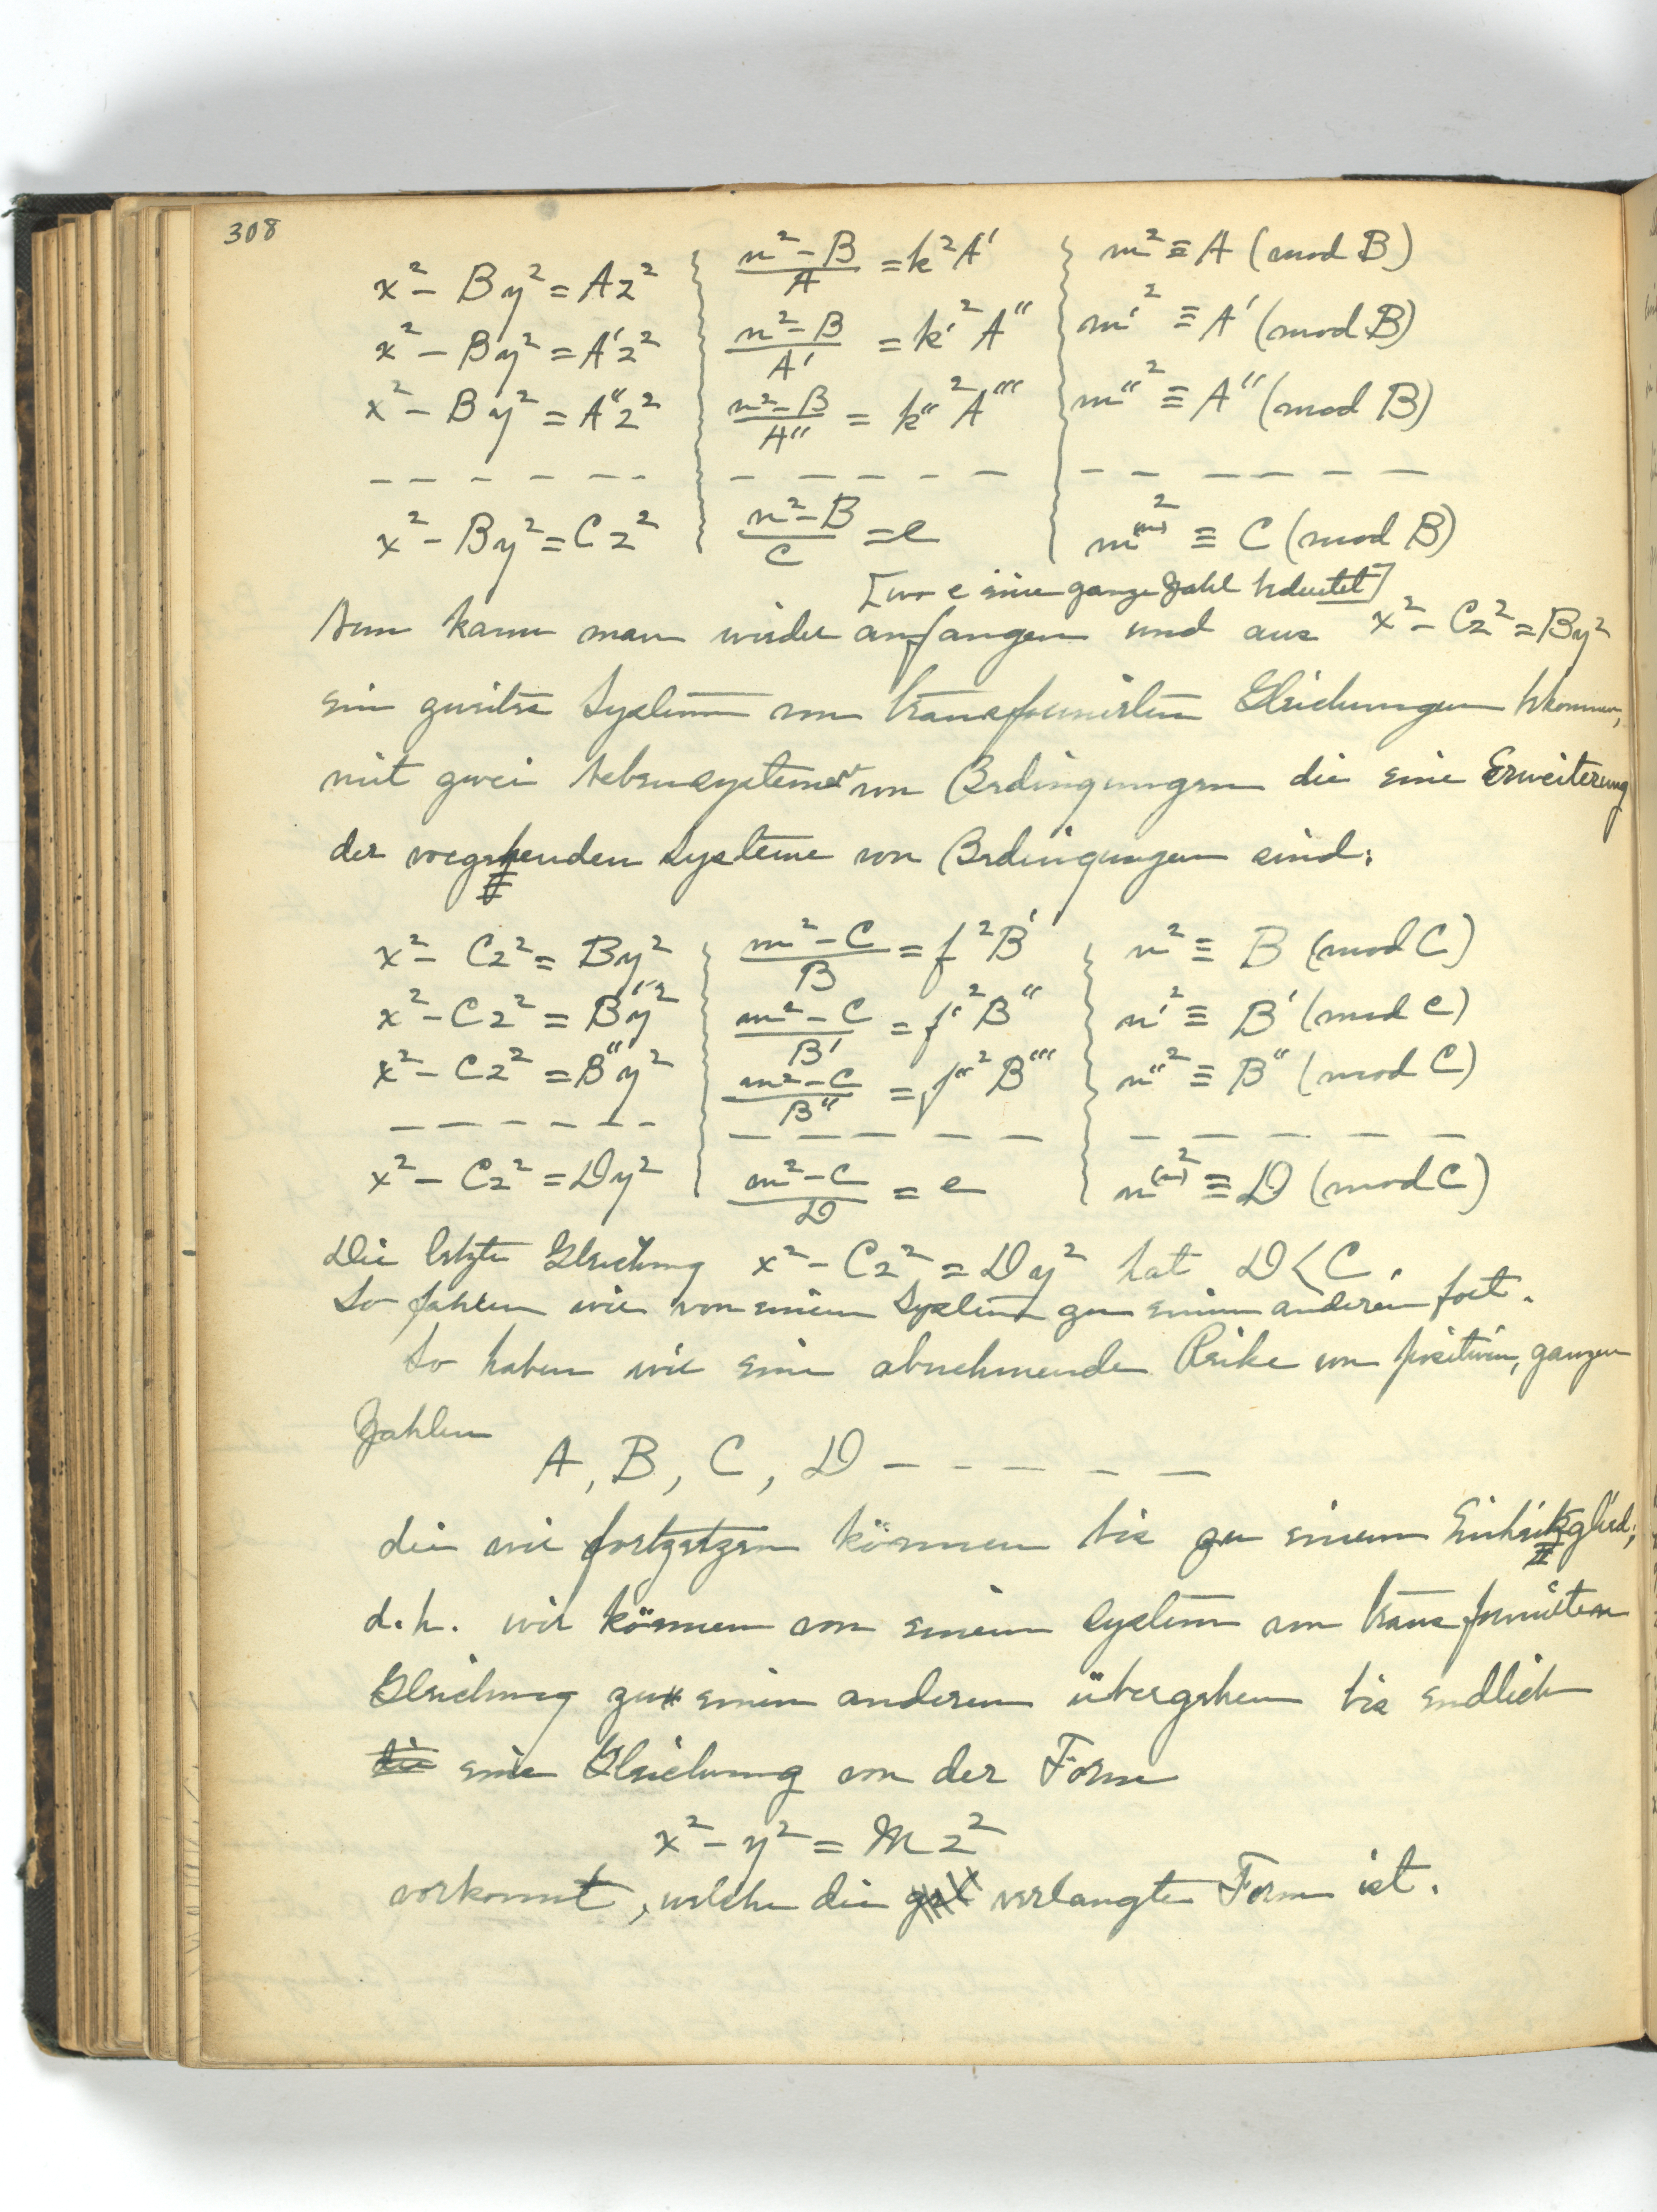 308
x² - By² = Az² | (n² - B)/A = k²A' | m² ≡ A (mod B)
x² - By² = A'z² | (n² - B)/A' = k'²A'' | m'² ≡ A' (mod B)
x² - By² = A''z² | (n² - B)/A'' = k''²A''' | m''² ≡ A'' (mod B)
— — — — — — | — — — — — — | — — — — — —
x² - By² = Cz² | (n² - B)/C = e | m⁽ⁿ⁾² ≡ C (mod B)
[wo e eine ganze Zahl bedeutet]
Nun kann man wieder anfangen und aus x² - Cz² = By²
ein zweites System von transformierten Gleichungen bekommen,
mit zwei Nebensystemen von Bedingungen die eine Erweiterung
der vorgehenden Systeme von Bedingungen sind:
x² - Cz² = By² | (m² - C)/B = f²B' | n² ≡ B (mod C)
x² - Cz² = B'y² | (m² - C)/B' = f'²B'' | n'² ≡ B' (mod C)
x² - Cz² = B''y² | (m² - C)/B'' = f''²B''' | n''² ≡ B'' (mod C)
— — — — — — | — — — — — — | — — — — —
x² - Cz² = Dy² | (m² - C)/D = e | n⁽ⁿ⁾² ≡ D (mod C)
Die letzte Gleichung x² - Cz² = Dy² hat D < C.
So fahren wir von einem System zu einem anderen fort.
So haben wir eine abnehmende Reihe von positiven, ganzen
Zahlen
A, B, C, D — — — — — —
die wir fortsetzen können bis zu einem Einheitsglied;
d.h. wir können von einem System von transformierten
Gleichung zu einem anderen übergehen bis endlich
die eine Gleichung von der Form
x² - y² = Mz²
vorkommt, welche die verlangte Form ist.